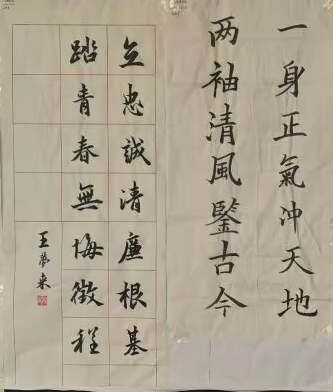 一身正氣冲天地
两袖清風鑒古今
立忠誠清廉根基
踏青春無悔徵程
王夢來